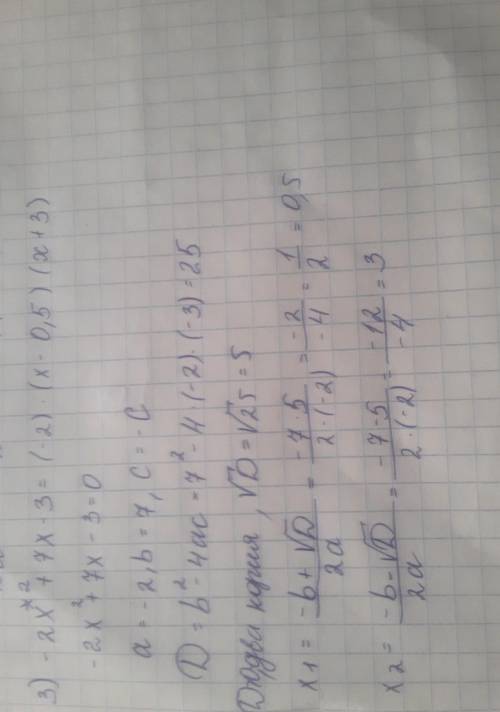 3) -2x² + 7x - 3 = (-2) · (x - 0,5) (x + 3)
-2x² + 7x - 3 = 0
a = -2, b = 7, c = -C
D = b² - 4ac = 7² - 4 · (-2) · (-3) = 25
корня, √D = √25 = 5
x1 = -b + √D / 2a = -7 · 5 / 2 · (-2) = -2 / -4 = 1 / 2 = 0,5
x2 = -b - √D / 2a = -7 - 5 / 2 · (-2) = -12 / -4 = 3